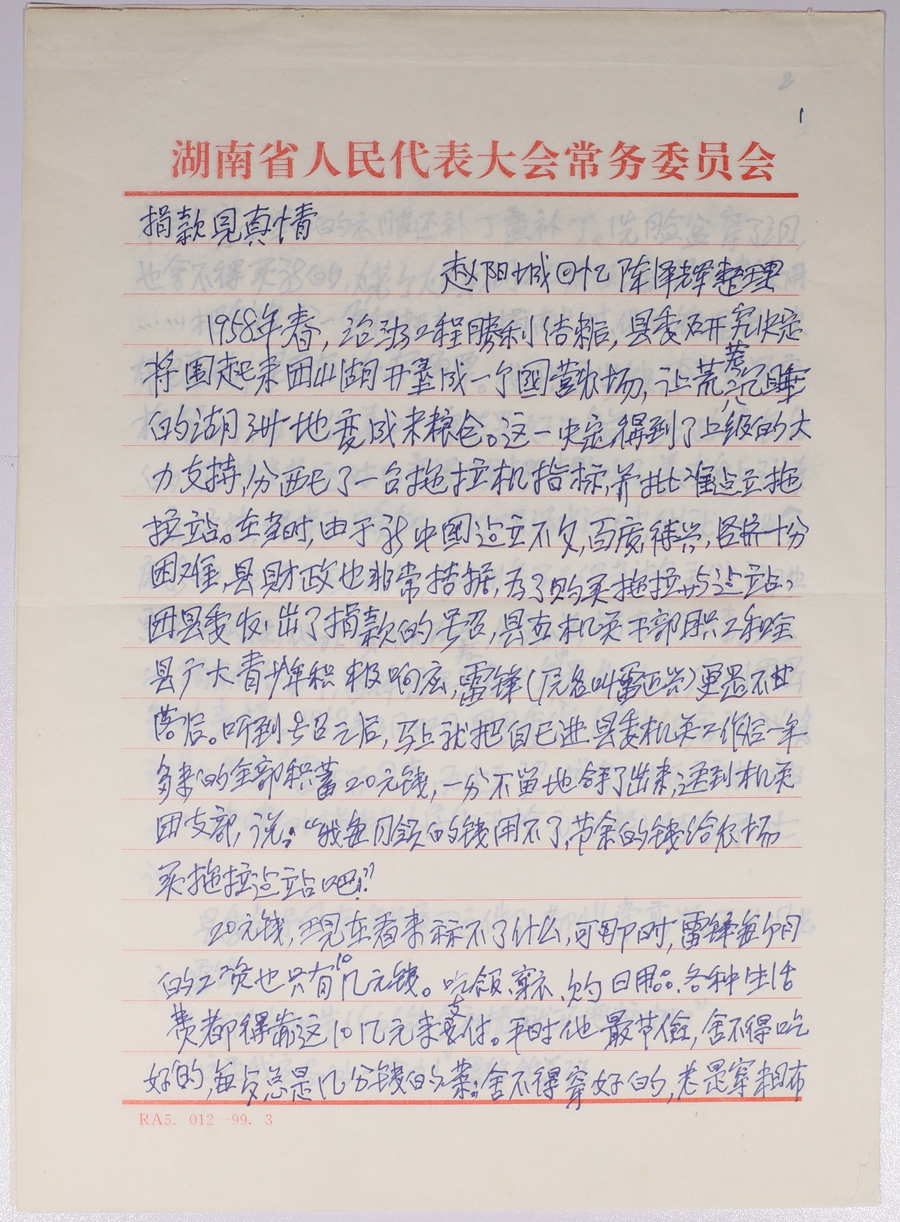 2
1
湖南省人民代表大会常务委员会
捐款见真情
赵阳城回忆 陈泽辉整理
1958年春，治沩工程胜利结束后，县委研究决定
将围起来团山湖开垦成一个国营农场，让荒芜沉睡
的湖洲地变成米粮仓。这一决定得到了上级的大
力支持，分配了一台拖拉机指标，并批准建立拖
拉站。在当时，由于新中国建立不久，百废待兴，经济十分
困难，县财政也非常拮据，为了购买拖拉机与建站，
团县委发出了捐款的号召，县直机关干部职工和全
县广大青少年积极响应，雷锋（原名叫雷正兴）更是不甘
落后。听到号召之后，马上就把自己进县委机关工作后一年
多来的全部积蓄20元钱，一分不留地拿了出来，送到机关
团支部，说：“我每月领的钱用不了，节余的钱给农场
买拖拉建站吧！”
20元钱，现在看来称不了什么，可那时，雷锋每个月
的工资也只有10几元钱。吃饭、穿衣、购日用品、各种生活
费都得靠这10几元来支付。平时他最节俭，舍不得吃
好的，每与总是几分钱的菜；舍不得穿好的，老是穿粗布
RA5. 012—99. 3